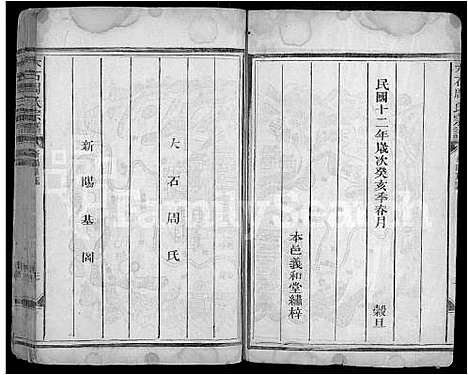 民國十二年歲次癸亥季春月
穀旦
本邑義和堂繡梓
大石周氏
新陽基圖
FamilySearch